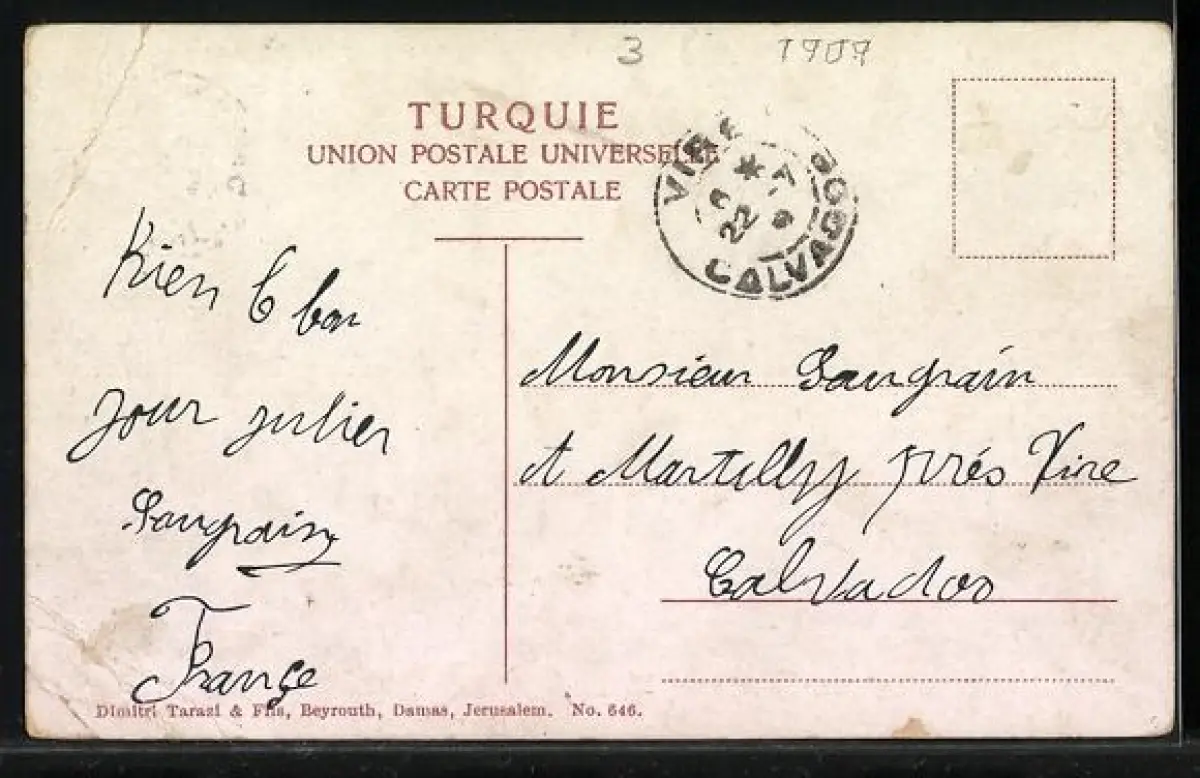 3 1909
TURQUIE
UNION POSTALE UNIVERSELLE
CARTE POSTALE
VIRE
22 -7
CALVADOS
Rien bon
jour julien
Saugrain
France
Monsieur Saugrain
A Martilly prés Vire
Calvados
Dimitri Tarazi & Fils, Beyrouth, Damas, Jerusalem. No. 646.